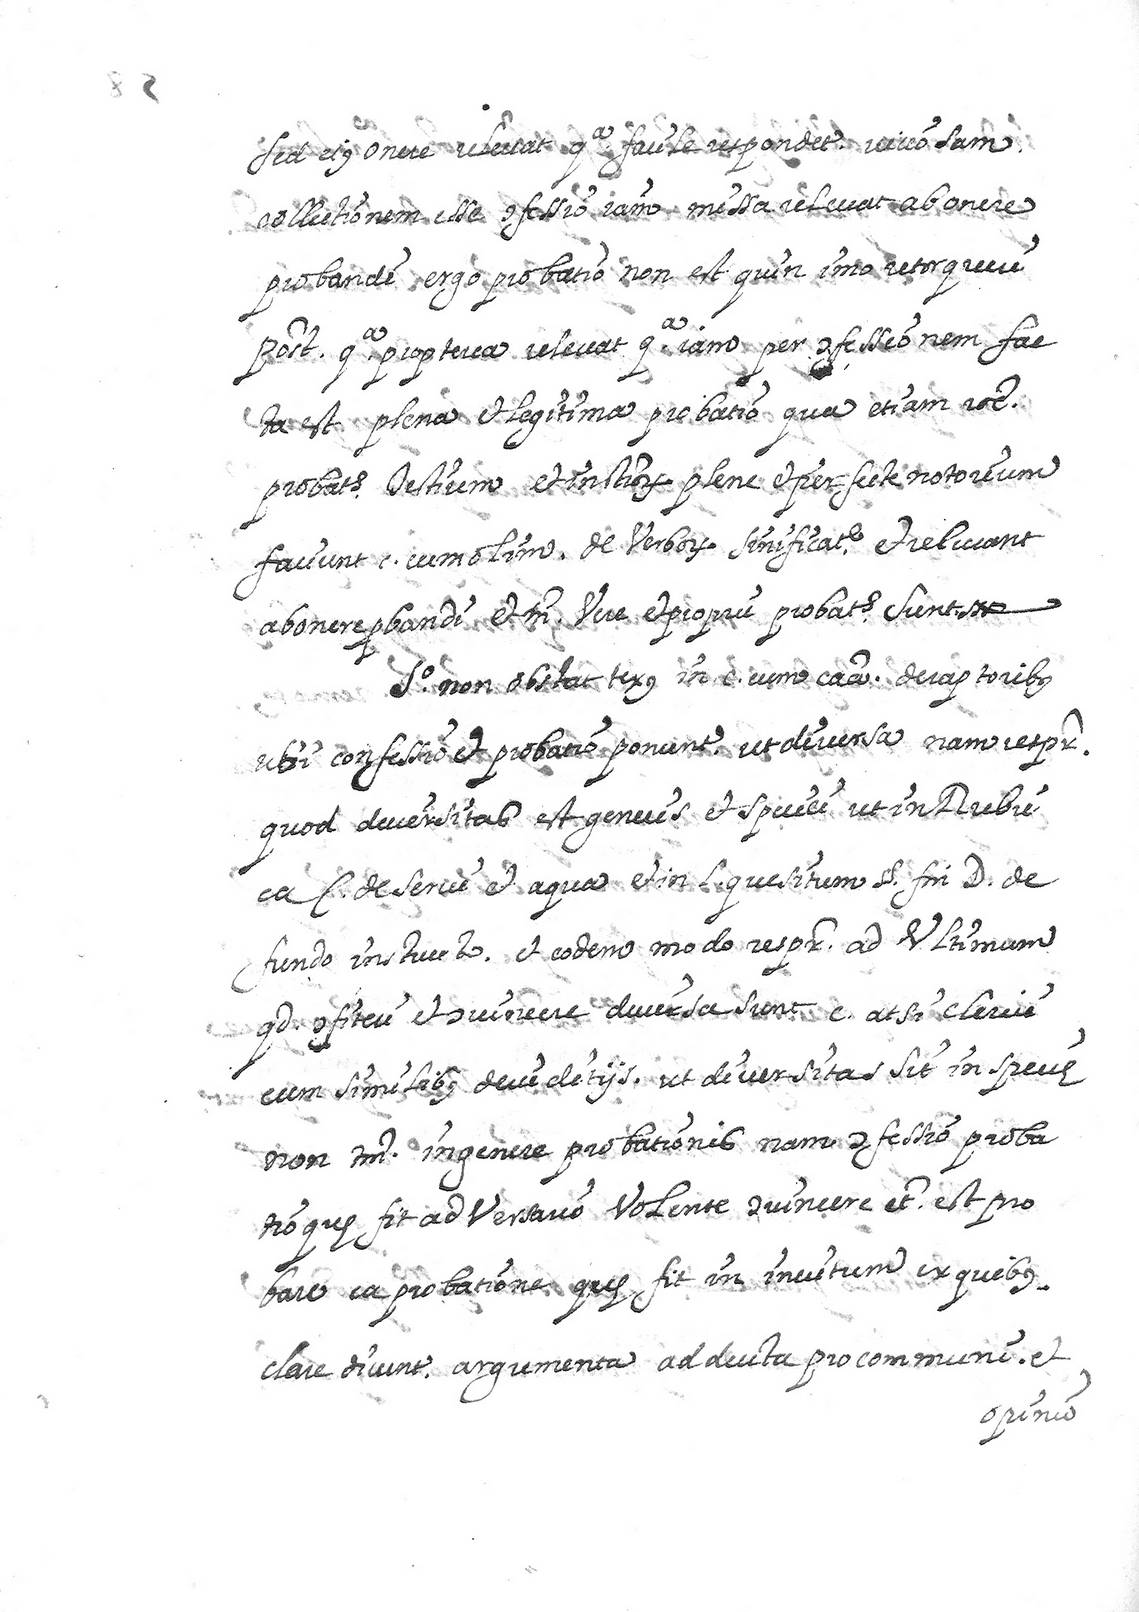 sed eiꝯ onere relevat qª. facile respondet.
collectionem esse ꝯfessio iam relevat ab onere
probandi ergo probatio non est quin imo retorqueri
Post. qª. propterea relevat qª. iam per ꝯfessionem fac
ta est plena et legitima probatio qua etiam
probatˢ. testium et plene et perfecte notorium
faciunt c. cum olim. de Verboꝝ sinificatᵉ. et relevant
ab onere ꝓbandi et Vere et proprie probatˢ. sunt
Sº. non obstat texꝯ in c. cum cãã. de raptoribꝯ
ubi confessio et probatio ponunt. ut diversa nam respr̃.
quod diversitas est generis et speciei ut in Rubri
ca C. de servi et aqua et in l. quesitum §. fin D. de
fundo instructo. et eodem modo respr̃. ad Vltimum
qd. ꝯfiteri et ꝯvincere diversa sunt c. at si clerici
cum similibꝯ de ut diversitas sit in specie
non tñ. in genere probationis nam ꝯfessio proba
tio que fit ad Versario Volente ꝯvincere et̃. est pro
bare ea probatione que fit in invitum ex quibꝯ
clare argumenta adducta pro communi. et
opinio